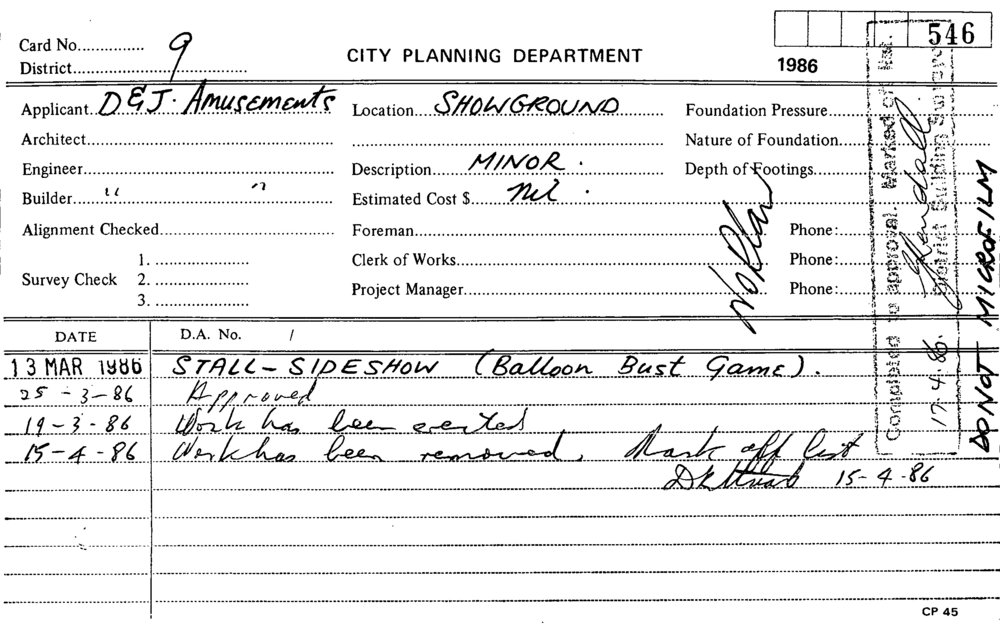 546
Card No............... 9
District..........................................
CITY PLANNING DEPARTMENT
1986
Applicant D & J. Amusements
Location SHOWGROUND
Foundation Pressure
Architect
Nature of Foundation
Engineer
Description MINOR.
Depth of Footings
Builder " "
Estimated Cost $ Nil.
Alignment Checked
Foreman
Phone:
Survey Check 1.
2.
3.
Clerk of Works
Phone:
Project Manager
Phone:
No Plan
Completed to approval. Marked off list.
District Building Surveyor
17.4.86.
DO NOT MICROFILM
DATE
D.A. No. /
13 MAR 1986 STALL - SIDESHOW (Balloon Bust Game).
25-3-86 Approved
19-3-86 Work has been erected
15-4-86 Work has been removed. Mark off list
15-4-86
CP 45